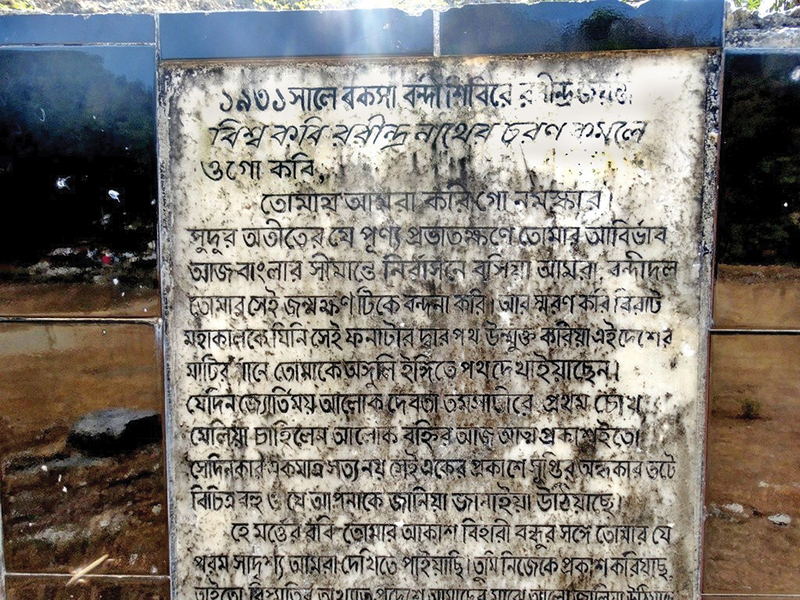 ১৯৩১ সালে বকসা বন্দী শিবিরে রবীন্দ্র জয়ন্তী
বিশ্ব কবি রবীন্দ্র নাথের চরণ কমলে
ওগো কবি,
তোমায় আমরা করি গো নমস্কার।
সুদুর অতীতের যে পূণ্য প্রভাতক্ষণে তোমার আবির্ভাব
আজ বাংলার সীমান্তে নির্বাসনে বসিয়া আমরা, বন্দীদল
তোমার সেই জন্মক্ষণ টিকে বন্দনা করি। আর স্মরণ করি বিরাট
মহাকালকে যিনি সেই ফনাটার দ্বার পথ উন্মুক্ত করিয়া এই দেশের
মাটির পানে তোমাকে অঙ্গুলি ইঙ্গিতে পথ দেখাইয়াছেন।
যেদিন জ্যোর্তিময় আলোক দেবতা তমসাতীরে প্রথম চোখ
মেলিয়া চাহিলেন আলোক বহ্নির আজ আত্ম প্রকাশইতো
সেদিনকার একমাত্র সত্য নয় সেই একের প্রকাশে সুপ্তির অন্ধকার তটে
বিচিত্র বহু ও যে আপনাকে জানিয়া জানাইয়া উঠিয়াছে।
হে মর্ত্তের রবি তোমার আকাশ বিহারী বন্ধুর সঙ্গে তোমার যে
পরম সাদৃশ্য আমরা দেখিতে পাইয়াছি। তুমি নিজেকে প্রকাশ করিয়াছ,
তাইতো বিস্মৃতির অখ্যাত প্রদেশে আমাদের মাঝে আলো জ্বালিয়া উঠিয়াছে